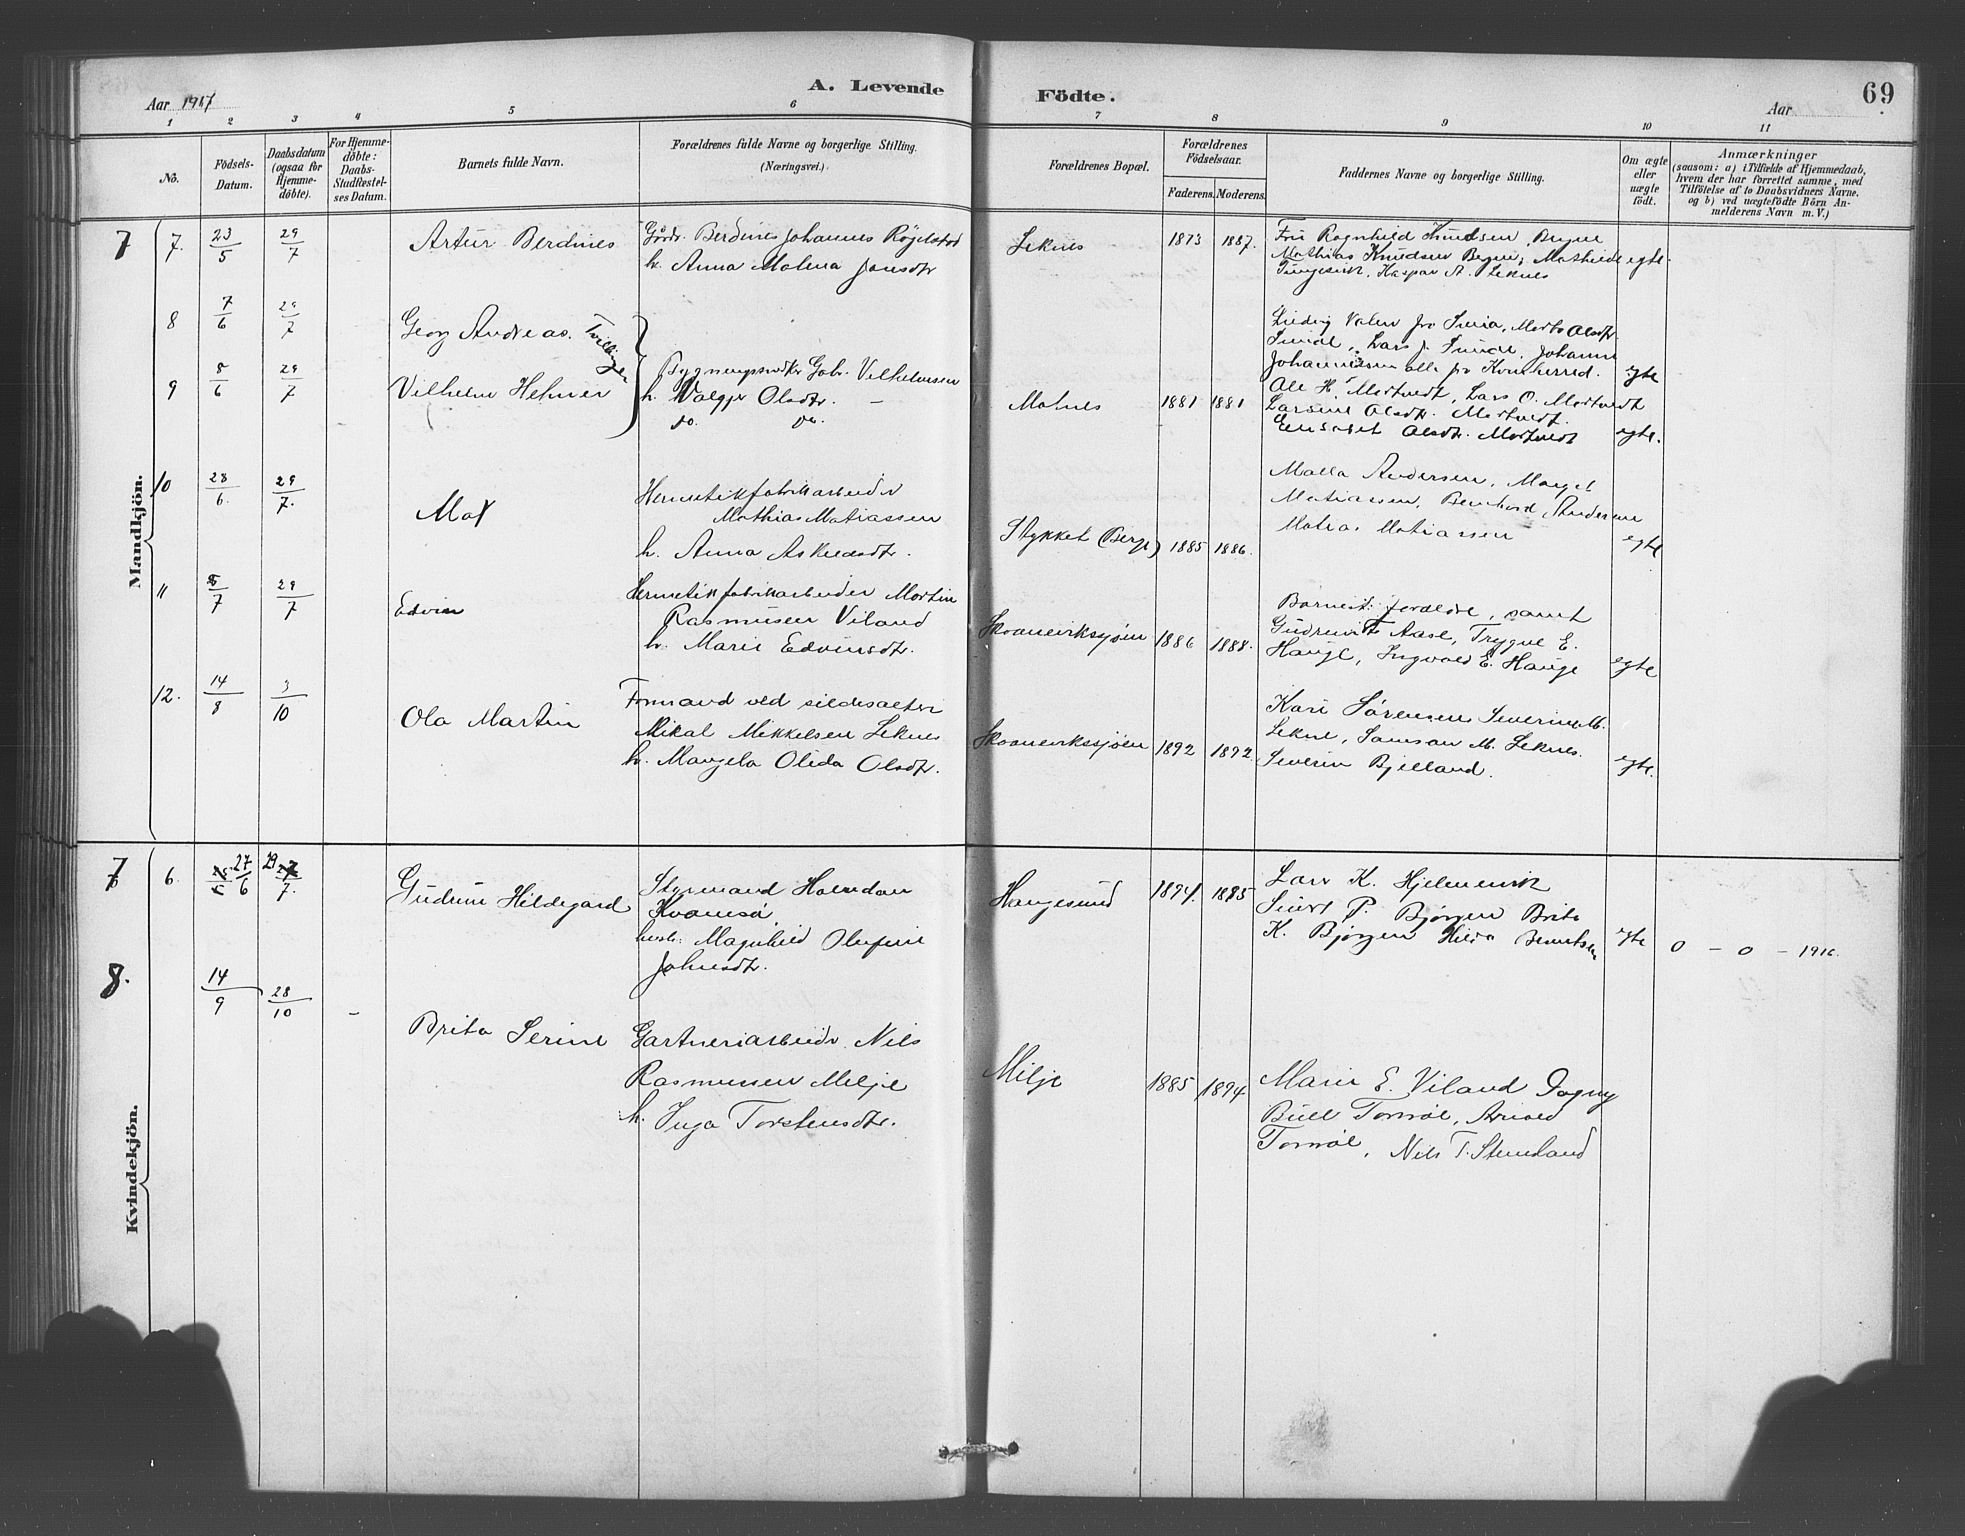 A. Levende Födte.
69
Aar 1917
Aar
1 2 3 4 5 6 7 8 9 10 11
No.
Födsels-Datum.
Daabsdatum (ogsaa for Hjemmedöbte).
For Hjemmedöbte: Daabs-Stadfæstelses Datum.
Barnets fulde Navn.
Forældrenes fulde Navne og borgerlige Stilling.
(Næringsvei.)
Forældrenes Bopæl.
Forældrenes Födselsaar.
Faderens. Moderens.
Faddernes Navne og borgerlige Stilling.
Om ægte eller uægte födt.
Anmærkninger
(saasom: a) i Tilfælde af Hjemmedaab,
hvem der har forrettet samme, med
Tilföielse af to Daabsvidners Navne,
og b) ved uægtefödte Börn An-
melderens Navn m. V.)
Mandkjön.
7 7. 23/5 29/7 Artur Berdines
Gårdr. Berdines Johannes
h. Anna Malena Jonsdtr
Leknes 1873 1887.
Fru Ragnhild Knudsen, Bryne
Mathias Knudsen Bryne, Mathilde
Tungesvik, Kaspar A. Leknes
egte.
8 7/6 29/7 Georg Andreas. Tvillinger
9 8/6 29/7 Vilhelm Helmer
Bygningssnedker Gabr. Vilhelmsen
h. Valgjer Olsdtr.
do. do.
Molnes 1881 1881
Valen fra Sunde, Marta Olsdtr.
Sunde, Lars J. Sunde, Johanne
Johannessen alle fra Kvinherred. egte
Ole H. Mortvedt, Lars O. Mortvedt
Larsine Olsdtr. Mortvedt.
Elisabet Olsdtr. Mortvedt egte.
10 28/6. 29/7. Max
Hermetikfabrikarbeider
Mathias Matiassen
h. Anna Aslaksdtr.
Stykket (Berge) 1885 1886.
Malla Andersen, Margit
Matiassen, Bernhard Andersen
Matias Matiassen
egte
11 8/7 29/7 Edvin
Hermetikfabrikarbeider Martin
Rasmussen Viland
h. Marie Edvinsdtr.
Skaanevikssjøen 1886 1888.
Barnets forældre, samt
Aase, Trygve E.
Hauge, Ingvald E. Hauge egte
12. 14/8 3/10 Ola Martin
Formand ved sildesalteri
Mikal Mikkelsen Leknes
h. Mangela Olida Olsdtr.
Skaanevikssjøen 1892 1892.
Kari Sørensen, Severine M.
Lekne, Samson M. Leknes.
Severin Bjelland. egte.
Kvindekjön.
7 6. 27/6 29/7. Gudrun Hildegard
Styrmand Halvdan
Kvamsø
hustr. Magnhild Olufine
Johnsdtr.
Haugesund 1894. 1885
Lars K. Hjelmervik
Sjurt P. Bjørgen Brita
K. Bjørgen Hilda Berentsen
egte 0 - 0 - 1916.
8. 14/9 28/10 - Brita Serine
Gartneriarbeidr. Nils
Rasmussen Milje
h. Inga Torstensdtr.
Milje 1885 1894
Marie E. Viland Dagny
Bull Tornøe, Arnold
Tornøe, Nils T. Stumland